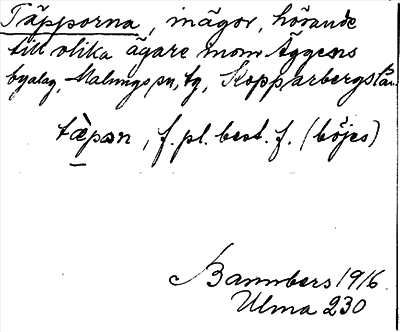 Täpporna, inägor, hörande
till olika ägare inom Äggens
byalag, Malungs sn, tg, Kopparbergs län.
tæ̀pən, f. pl. best. f. (böjes)
Bannbers 1916
Ulma 230